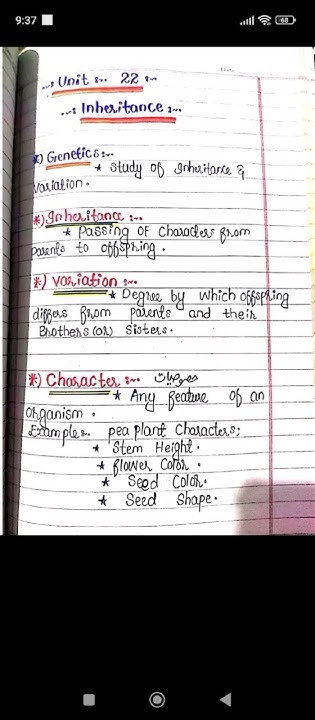 9:37
68
...: Unit :-. 22 :-
...: Inheritance :-.
*) Genetics :-.
★ Study of Inheritance &
Variation.
*) Inheritance :-.
★ Passing of Characters from
Parents to offspring.
*) Variation :-.
★ Degree by which offspring
differs from parents and their
Brothers (or) Sisters.
*) Character :-.
★ Any feature of an
Organism.
Example:-. pea plant Characters;
★ Stem Height.
★ flower Color.
★ Seed Color.
★ Seed Shape.